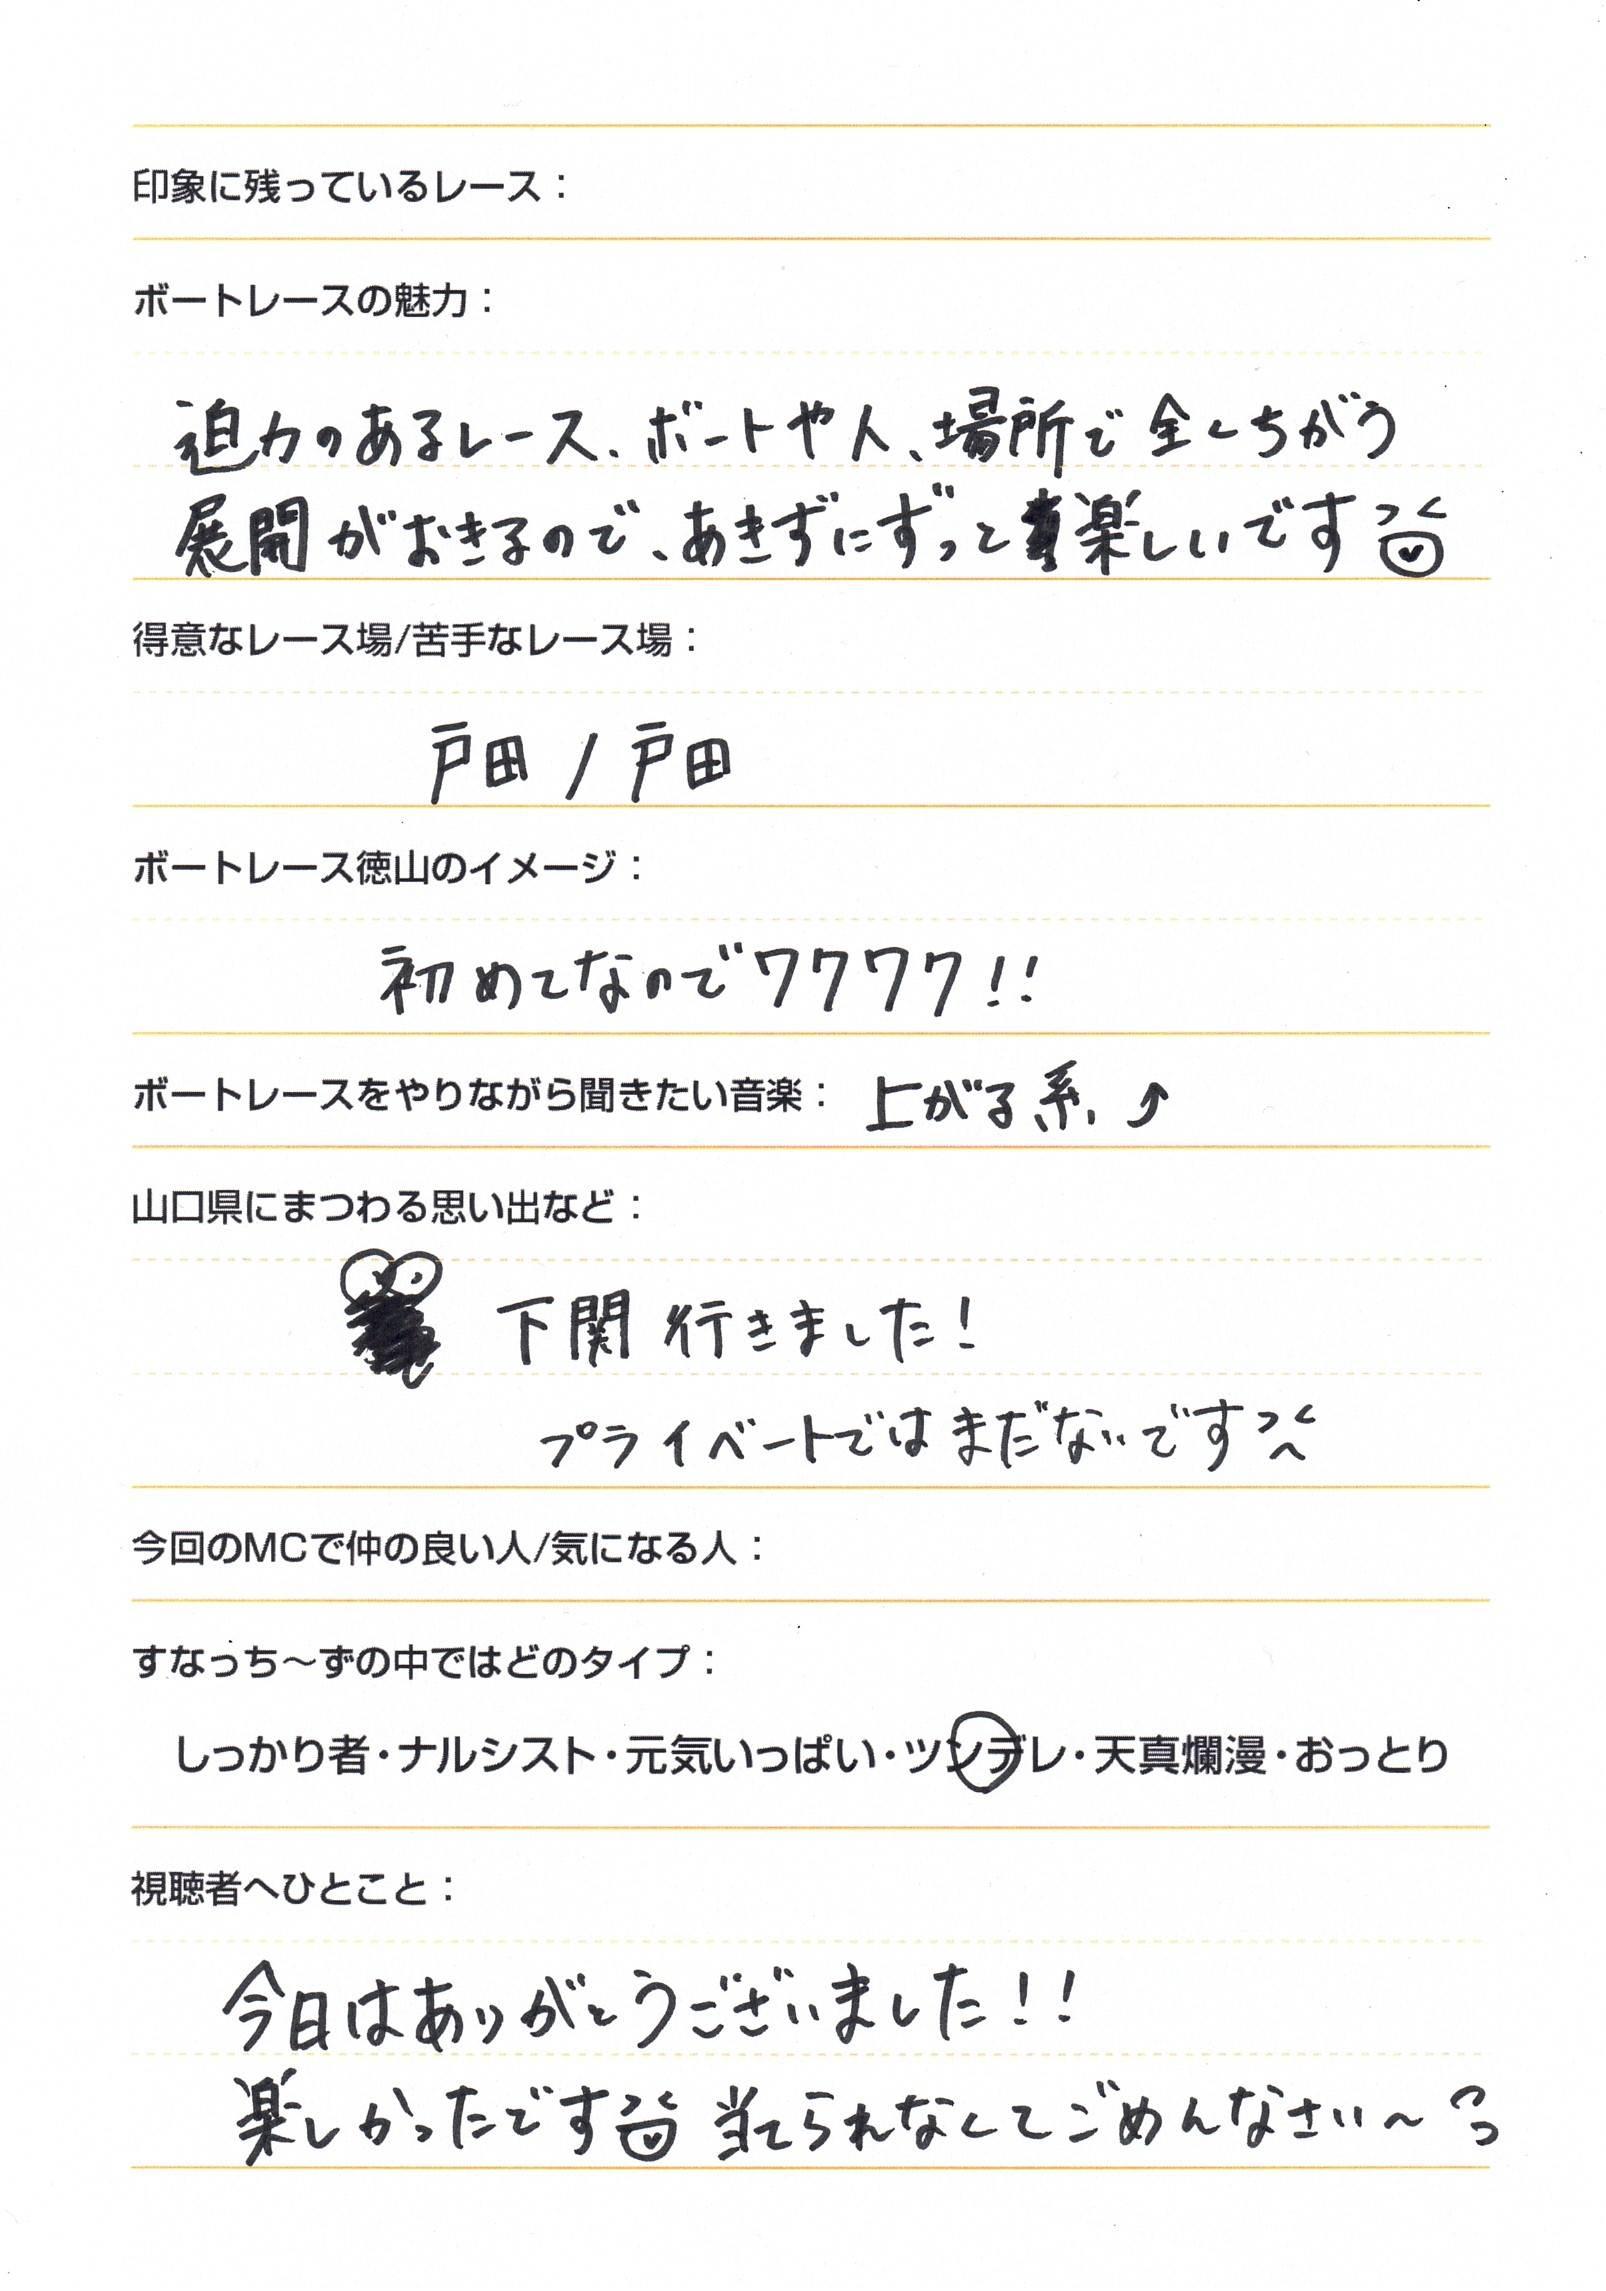 印象に残っているレース：
ボートレースの魅力：
迫力のあるレース、ボートや人、場所で全くちがう
展開がおきるので、あきずにずっと楽しいです
得意なレース場/苦手なレース場：
戸田 / 戸田
ボートレース徳山のイメージ：
初めてなのでワクワク!!
ボートレースをやりながら聞きたい音楽： 上がる系、↑
山口県にまつわる思い出など：
下関 行きました!
プライベートではまだないです
今回のMCで仲の良い人/気になる人：
すなっち～ずの中ではどのタイプ：
しっかり者・ナルシスト・元気いっぱい・ツンデレ・天真爛漫・おっとり
視聴者へひとこと：
今日はありがとうございました!!
楽しかったです 当てられなくてごめんなさい～